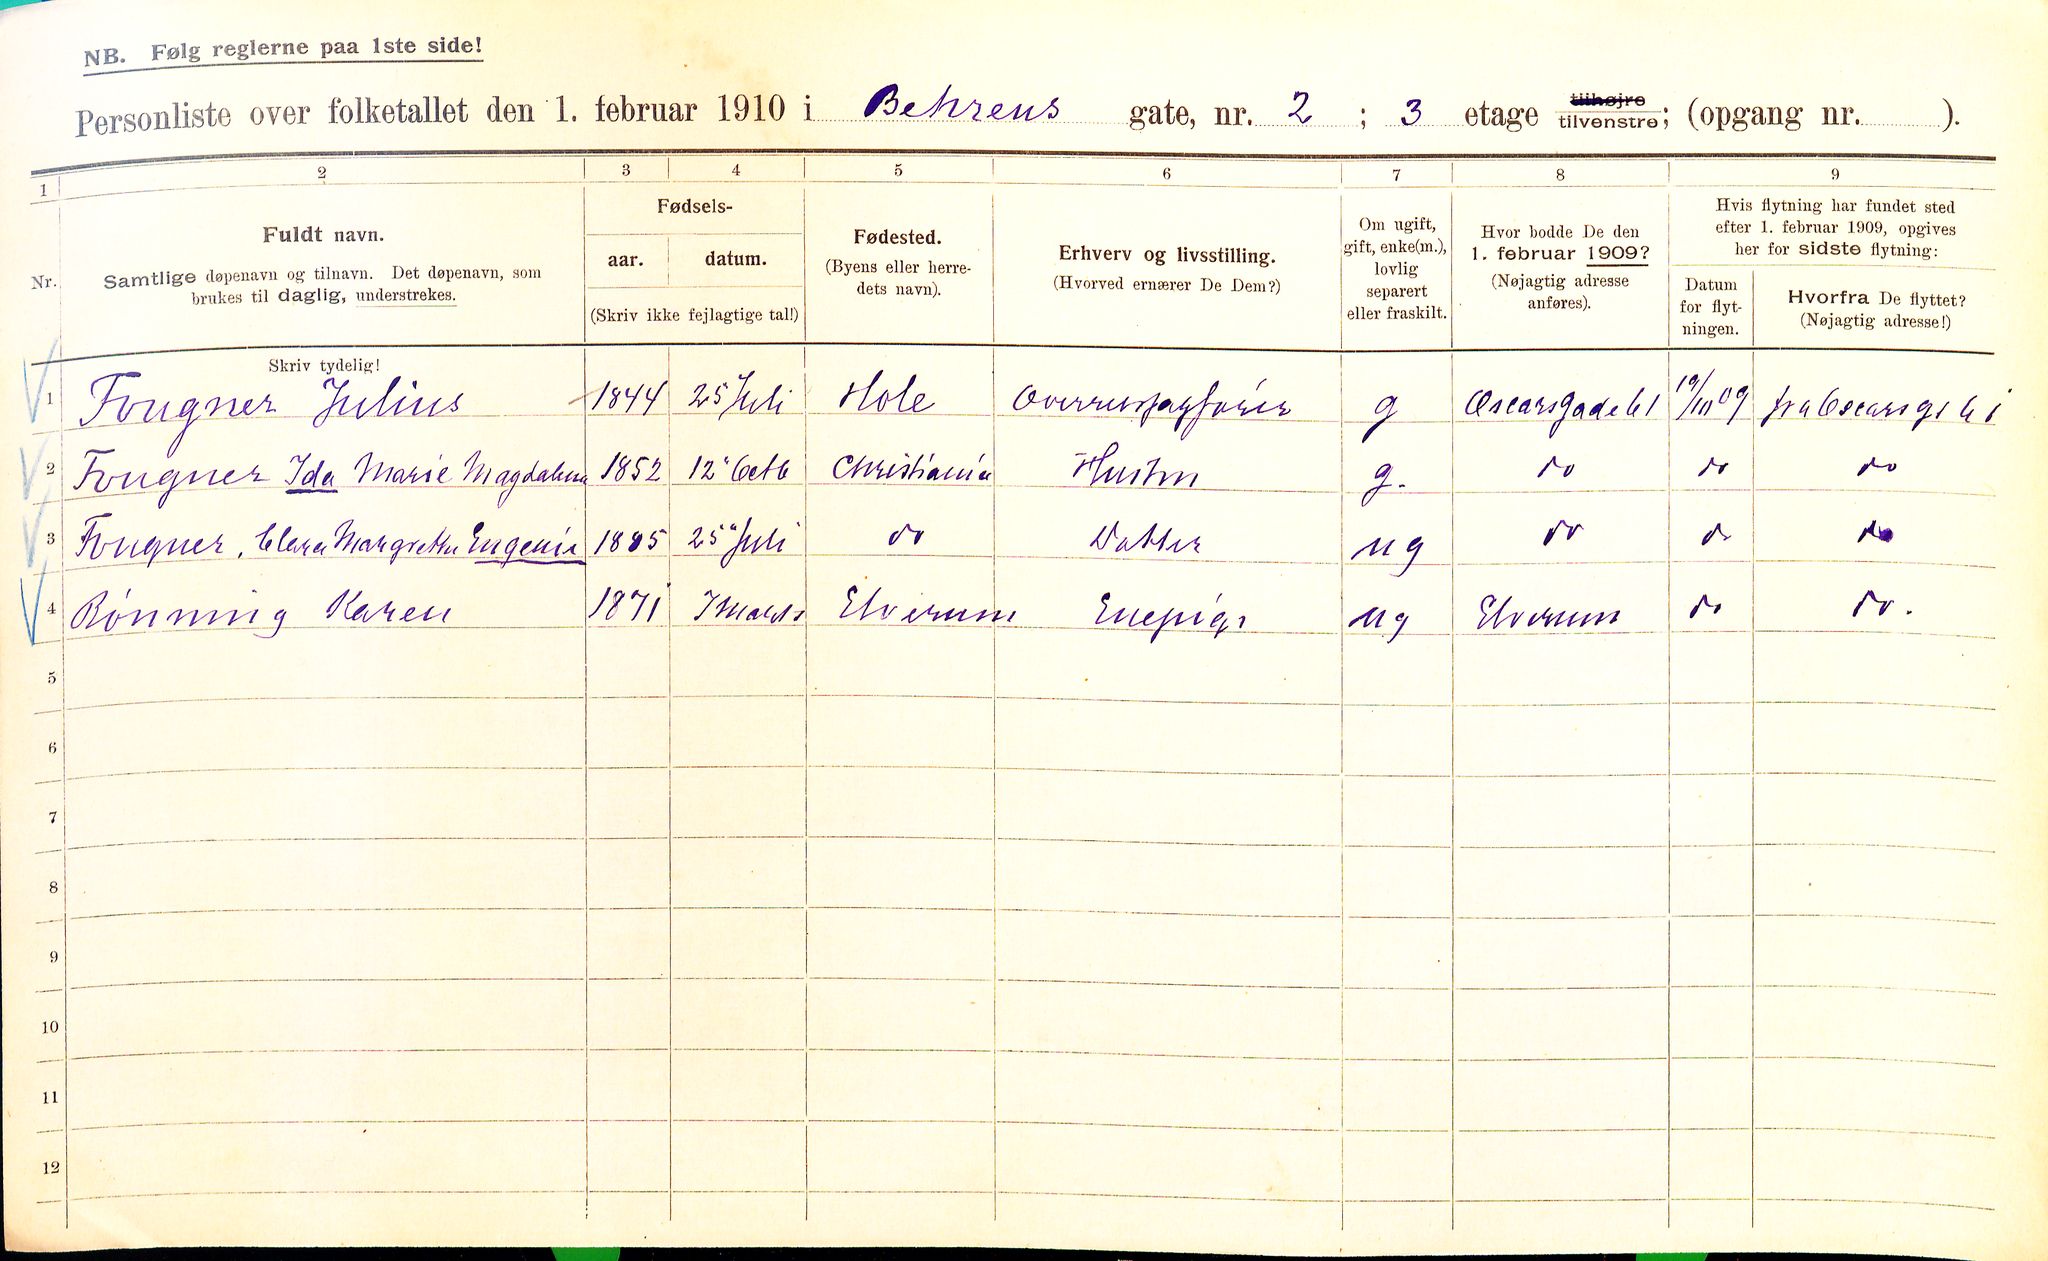 NB. Følg reglerne paa 1ste side!
Personliste over folketallet den 1. februar 1910 i Behrens gate, nr. 2 ; 3 etage tilhøjre tilvenstre; (opgang nr. ).
1 2 3 4 5 6 7 8 9
Nr.
Fuldt navn.
Samtlige døpenavn og tilnavn. Det døpenavn, som
brukes til daglig, understrekes.
Skriv tydelig!
Fødsels-
aar. datum.
(Skriv ikke fejlagtige tal!)
Fødested.
(Byens eller herre-
dets navn).
Erhverv og livsstilling.
(Hvorved ernærer De Dem?)
Om ugift,
gift, enke(m.),
lovlig
separert
eller fraskilt.
Hvor bodde De den
1. februar 1909?
(Nøjagtig adresse
anføres).
Hvis flytning har fundet sted
efter 1. februar 1909, opgives
her for sidste flytning:
Datum
for flyt-
ningen.
Hvorfra De flyttet?
(Nøjagtig adresse!)
1 Fougner Julius 1844 25 Juli Hole g Oscarsgade 61 09 fra Oscarsg. 61
2 Fougner Ida Marie Magdalena 1852 12' Octb Christiania Hustru g. do do do
3 Fougner, Clara Margrethe Eugenie 1885 25' Juli do Datter ug do do do
4 Rönning Karen 1871 Marts Elverum Enepige ug Elverum do do.
5
6
7
8
9
10
11
12